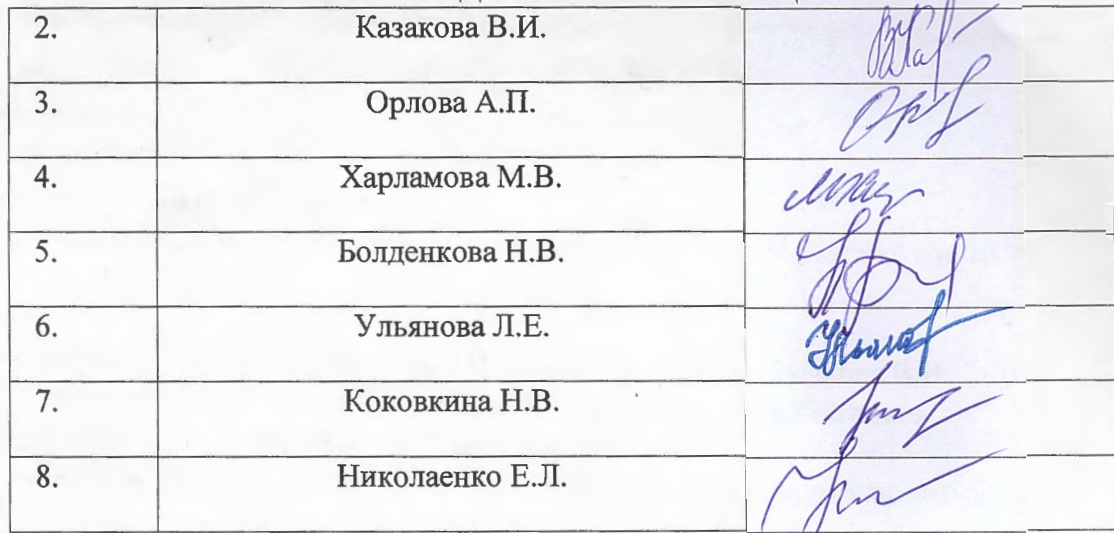 2. Казакова В.И.
3. Орлова А.П.
4. Харламова М.В.
5. Болденкова Н.В.
6. Ульянова Л.Е.
7. Коковкина Н.В.
8. Николаенко Е.Л.